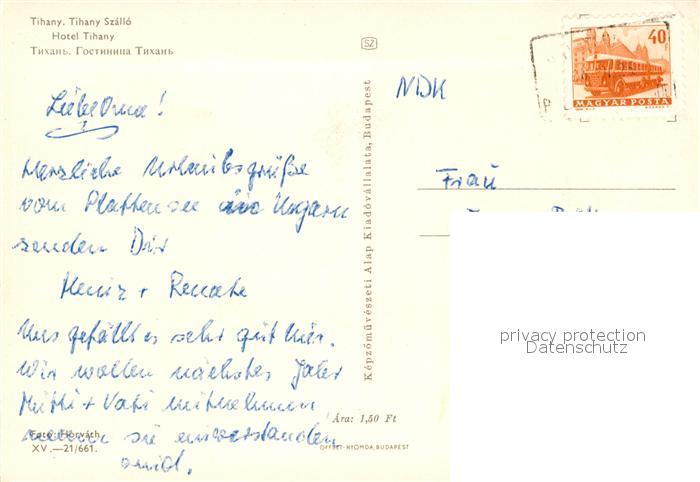 Tihany. Tihany Szálló
Hotel Tihany
Тихань. Гостиница Тихань
SZ
40
MAGYAR POSTA
NDK
Liebe Oma!
Herzliche Urlaubsgrüße
vom Plattensee in Ungarn
senden Dir
Heinz + Renate
Uns gefällt es sehr gut hier.
Wir wollen nächstes Jahr
Mutti + Vati mitnehmen
wenn sie einverstanden
sind.
Foto: Horváth
XV.—21/661.
Képzőművészeti Alap Kiadóvállalata, Budapest
Ára: 1,50 Ft
OFFSET-NYOMDA, BUDAPEST
Frau
privacy protection
Datenschutz